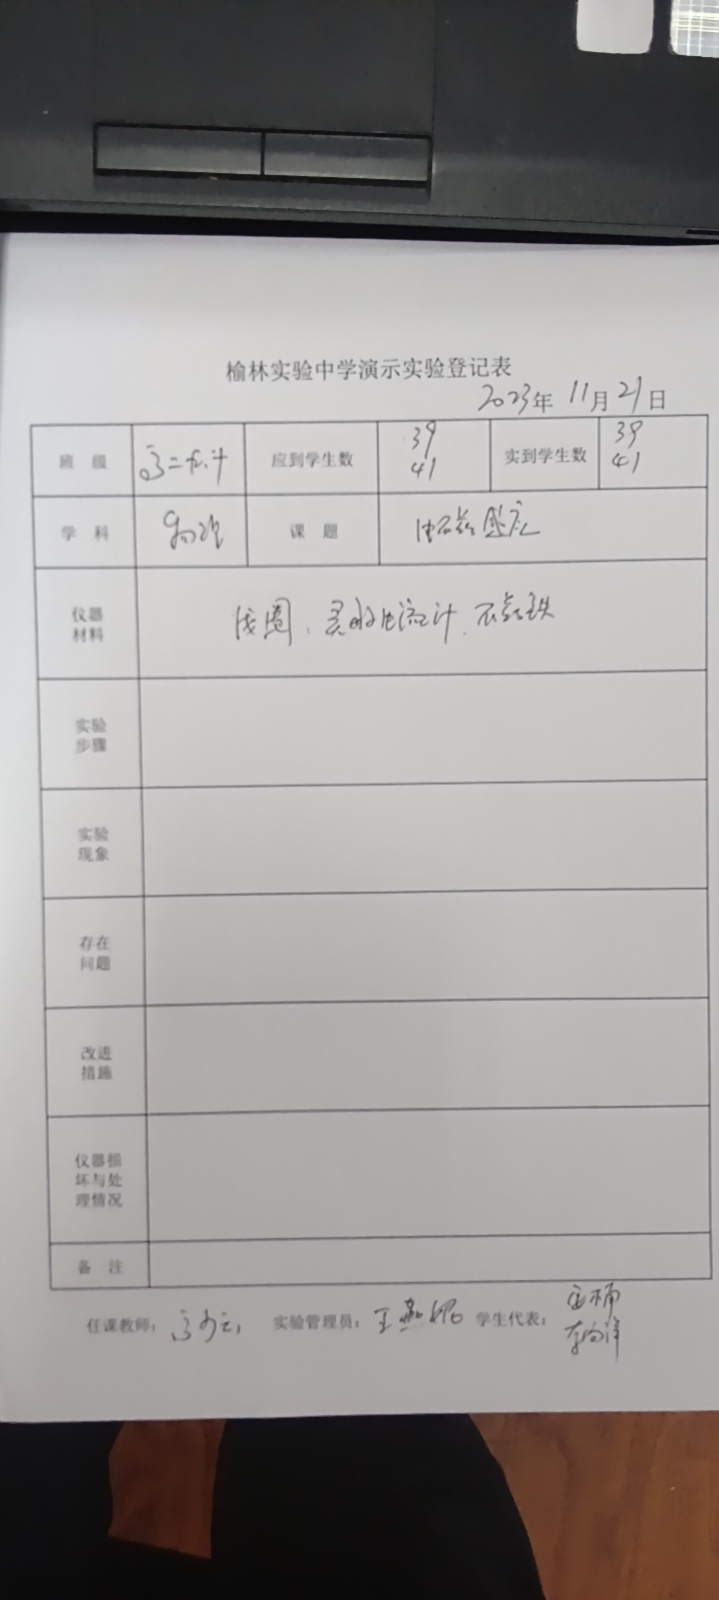 榆林实验中学演示实验登记表
2023年 11月21日
班 级 高二 应到学生数 39 41 实到学生数 39 41
学 科 物理 课 题 电磁感应
仪器
材料
线圈、灵敏电流计、磁铁
实验
步骤
实验
现象
存在
问题
改进
措施
仪器损
坏与处
理情况
备 注
任课教师： 实验管理员：王燕妮 学生代表：